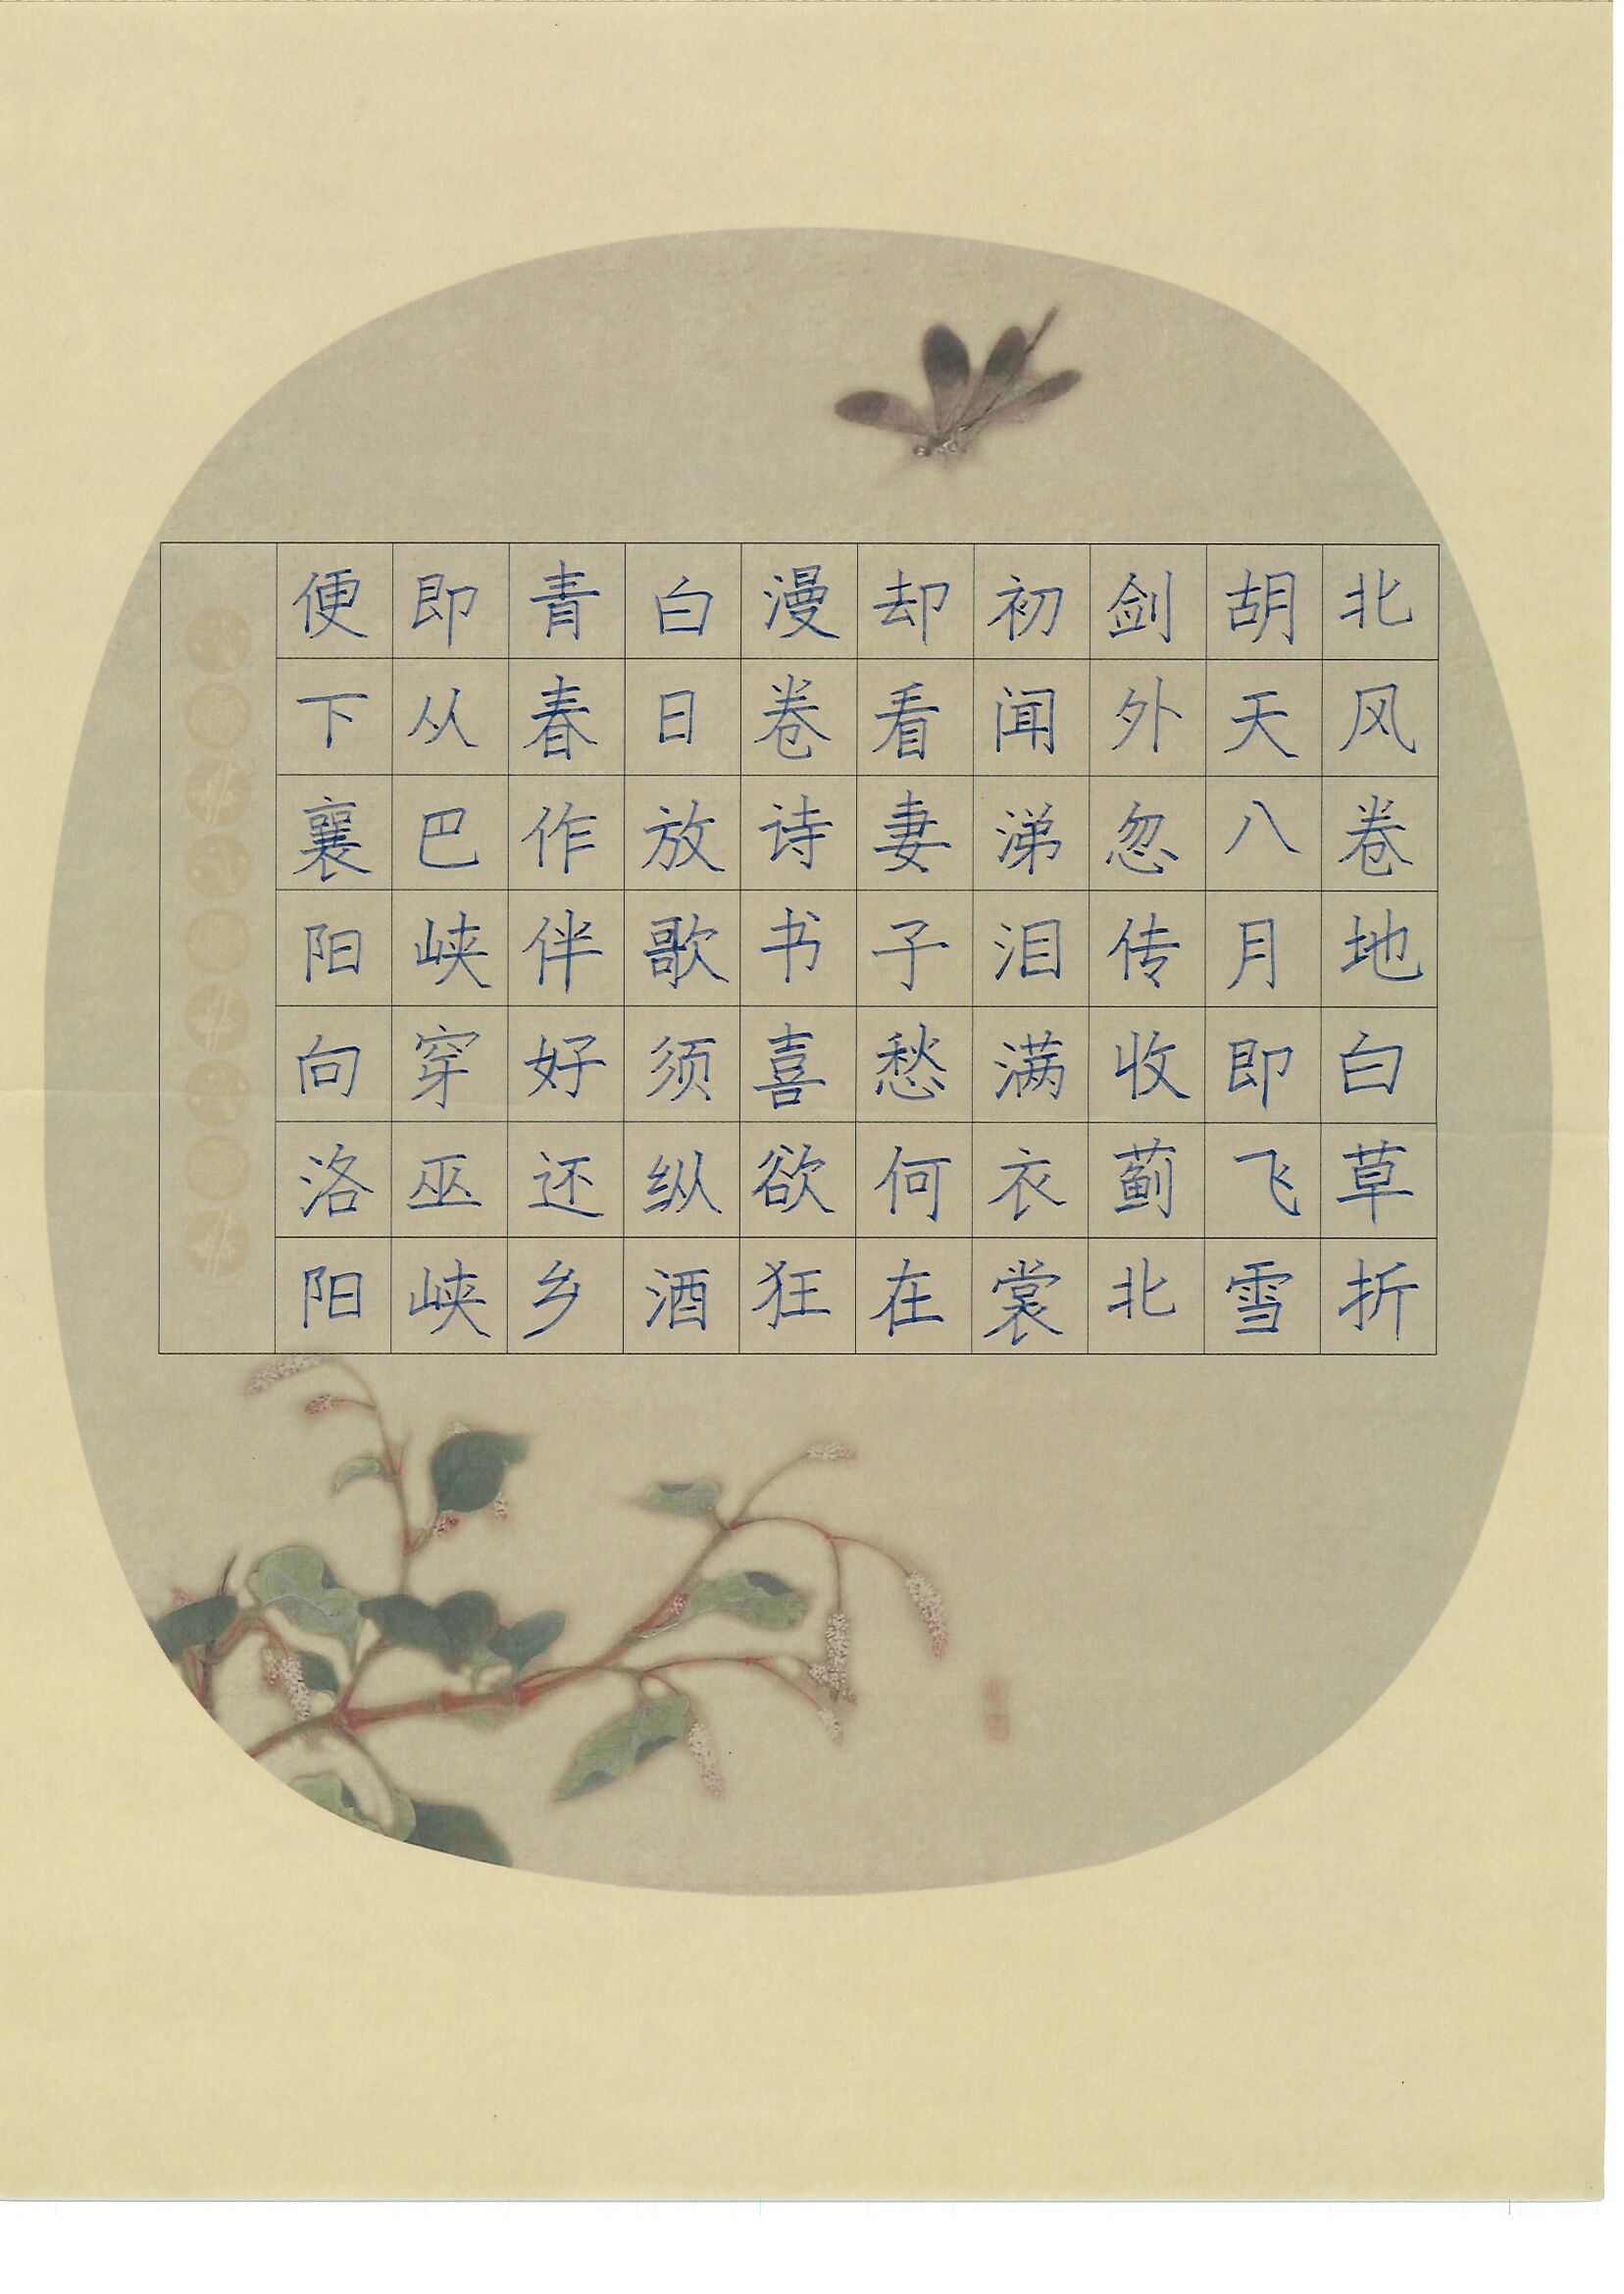 北风卷地白草折
胡天八月即飞雪
剑外忽传收蓟北
初闻涕泪满衣裳
却看妻子愁何在
漫卷诗书喜欲狂
白日放歌须纵酒
青春作伴好还乡
即从巴峡穿巫峡
便下襄阳向洛阳